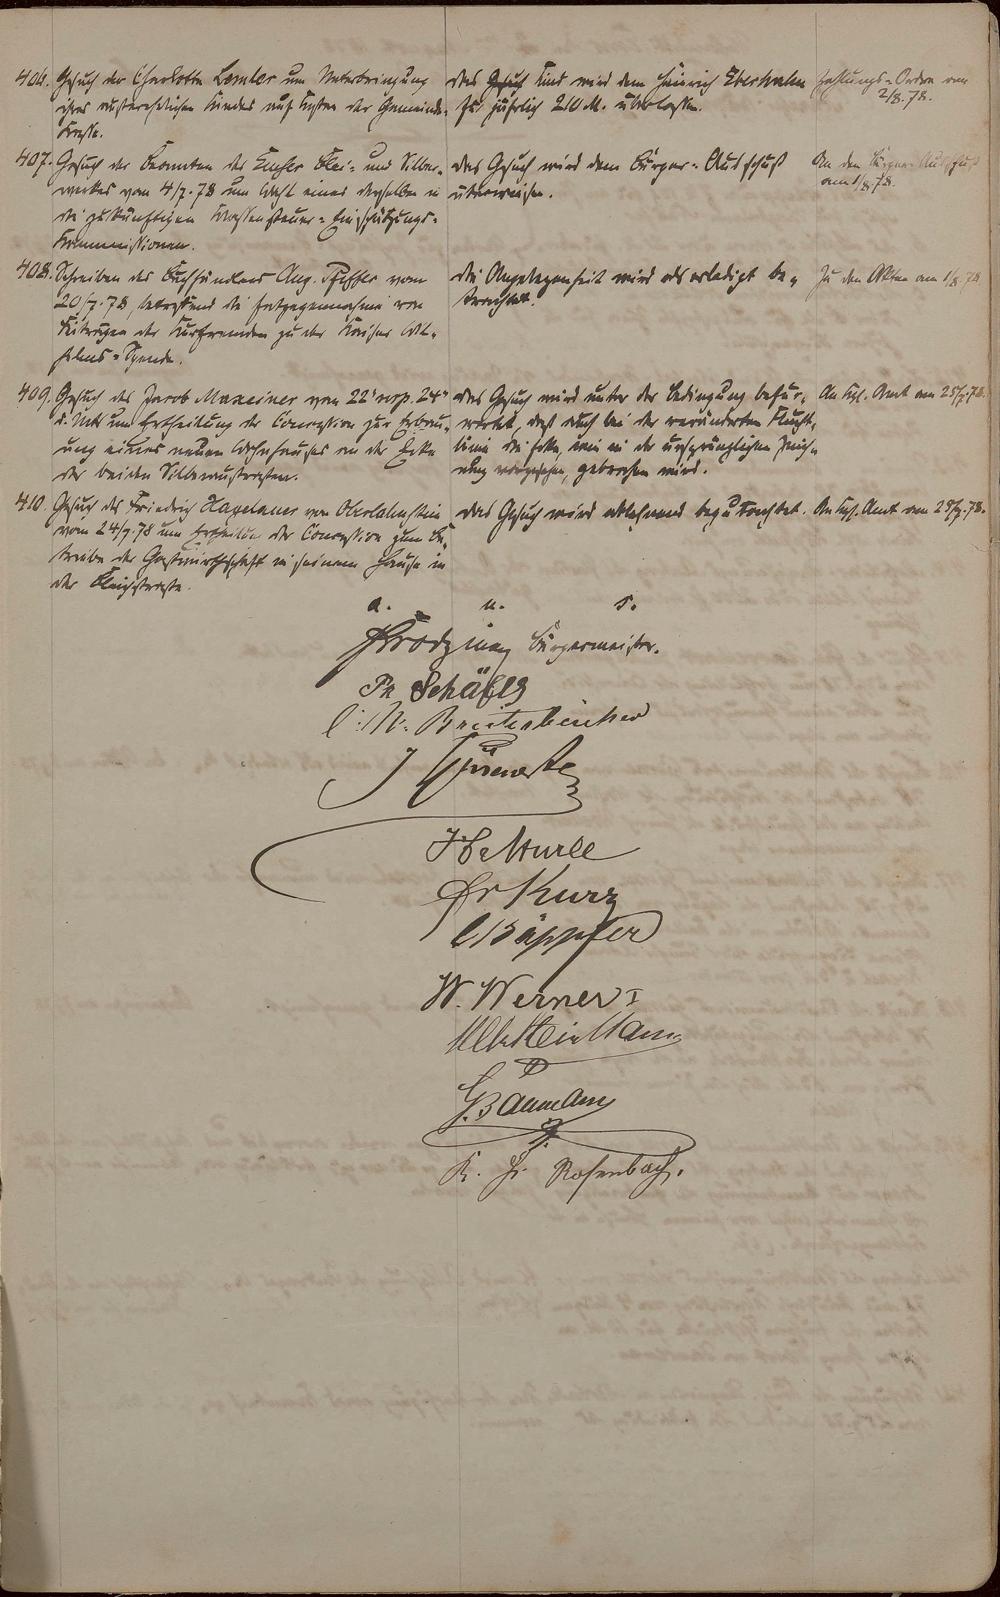 406. Gesuch der Charlotte Lemler um Unterbringung
ihres außerehelichen Kindes auf Kosten der Gemeinde-
kasse.
Das Kind wird dem Heinrich
zu jährlich 210 M. überlassen.
Zahlungs-Ordre vom
2/8.78.
407. Gesuch der Beamten des Emser Blei- und Silber-
werkes vom 4/7.78 um Wahl eines derselben in
die zukünftigen Klassensteuer-Einschätzungs-
Kommissionen.
Das Gesuch wird dem Bürger-Ausschuß
überwiesen.
An den Bürger-Ausschuß
am 1/8.78.
408. Schreiben des Buchhändlers Aug. Pfeffer vom
20/7.78, betreffend die Entgegennahme von
Beiträgen der Kurfremden zu der Kaiser Wil-
helms-Spende.
Die Angelegenheit wird als erledigt be-
trachtet.
Zu den Akten am 1/8.78
409. Gesuch des Jacob Maxeiner vom 22t resp. 24t
d. Mts um Ertheilung der Concession zur Erbau-
ung eines neuen Wohnhauses an der Ecke
der beiden Silberaustraßen.
Das Gesuch wird unter der Bedingung befür-
wortet, daß auch bei der veränderten Flucht-
linie die Ecke, wie in der ursprünglichen Zeich-
nung vorgesehen, gebrochen wird.
An Kgl. Amt am 25/7.78.
410. Gesuch des Friedrich von Oberlahnstein
vom 24/7.78 um der Concession zum Be-
triebe der Gastwirthschaft in seinem Hause in
der Bleichstraße.
Das Gesuch wird ablehnend begutachtet.
An Kgl. Amt am 29/7.78.
a. u. s.
Bürgermeister.
Ph Schäfer
J
Dr Kurz
W. Werner I
G. Baumann
K. Rosenbach.